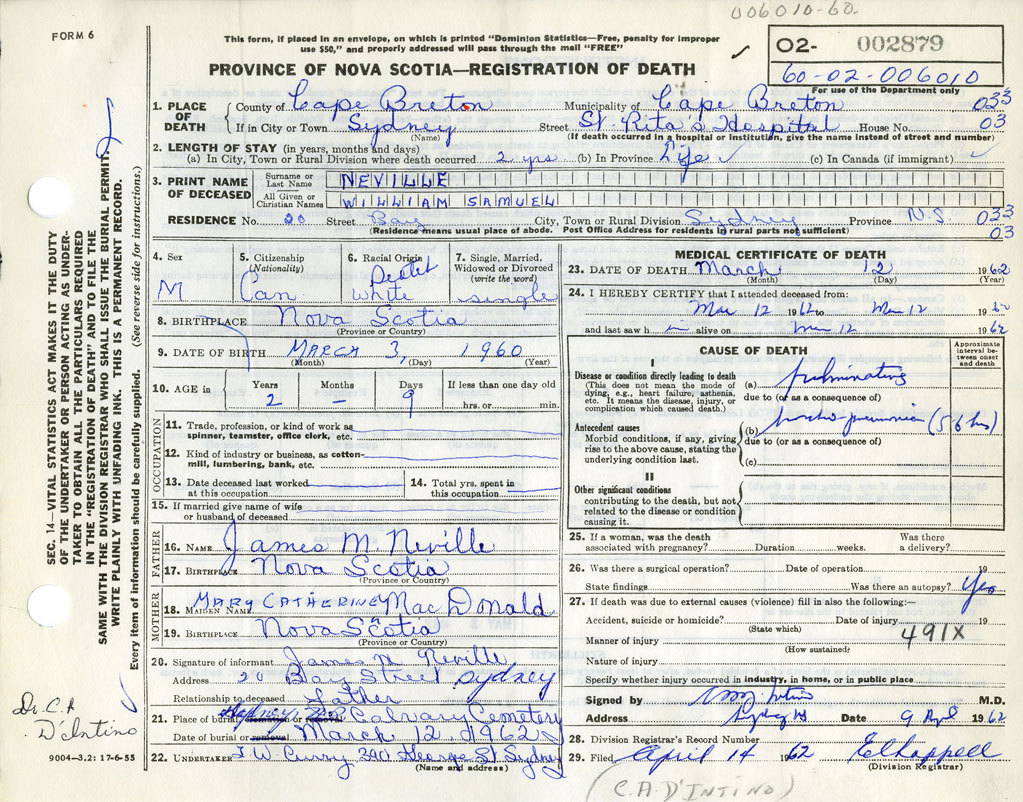 006010-60.
FORM 6
This form, if placed in an envelope, on which is printed "Dominion Statistics—Free, penalty for improper
use $50," and properly addressed will pass through the mail "FREE"
02- 002879
60-02-006010
For use of the Department only
PROVINCE OF NOVA SCOTIA—REGISTRATION OF DEATH
1. PLACE OF DEATH
County of Cape Breton Municipality of Cape Breton 033
If in City or Town Sydney Street St. Rita's Hospital House No. 03
(Name) (If death occurred in a hospital or institution, give the name instead of street and number)
2. LENGTH OF STAY (in years, months and days)
(a) In City, Town or Rural Division where death occurred 2 yrs (b) In Province Life (c) In Canada (if immigrant)
3. PRINT NAME OF DECEASED
Surname or Last Name NEVILLE
All Given or Christian Names WILLIAM SAMUEL
RESIDENCE No. 20 Street Bay City, Town or Rural Division Sydney Province N.S. 033
03
(Residence means usual place of abode. Post Office Address for residents in rural parts not sufficient)
4. Sex
M
5. Citizenship
(Nationality)
Can
6. Racial Origin
white
7. Single, Married,
Widowed or Divorced
(write the word)
single
8. BIRTHPLACE Nova Scotia
(Province or Country)
9. DATE OF BIRTH MARCH 3, 1960
(Month) (Day) (Year)
10. AGE in
Years Months Days If less than one day old
2 - 9 hrs. or min.
OCCUPATION
11. Trade, profession, or kind of work as
spinner, teamster, office clerk, etc.
12. Kind of industry or business, as cotton-
mill, lumbering, bank, etc.
13. Date deceased last worked
at this occupation
14. Total yrs. spent in
this occupation
15. If married give name of wife
or husband of deceased
FATHER
16. NAME James M. Neville
17. BIRTHPLACE Nova Scotia
(Province or Country)
MOTHER
18. MAIDEN NAME MARY CATHERINE Mac Donald
19. BIRTHPLACE Nova Scotia
(Province or Country)
20. Signature of informant James M Neville
Address 20 Bay Street Sydney
Relationship to deceased Father
21. Place of burial, cremation or removal Calvary Cemetery
Date of burial or removal March 12, 1962
22. UNDERTAKER T W Curry 390 George St Sydney
(Name and address)
MEDICAL CERTIFICATE OF DEATH
23. DATE OF DEATH March 12 1962
(Month) (Day) (Year)
24. I HEREBY CERTIFY that I attended deceased from:
Mar 12 1962 to Mar 12 19
and last saw h im alive on Mar 12 1962
CAUSE OF DEATH
Approximate
interval between onset
and death
I
Disease or condition directly leading to death
(This does not mean the mode of
dying, e.g., heart failure, asthenia,
etc. It means the disease, injury, or
complication which caused death.)
(a) fulminating
due to (or as a consequence of)
Antecedent causes
Morbid conditions, if any, giving
rise to the above cause, stating the
underlying condition last.
(b) broncho-pneumonia (56 hrs)
due to (or as a consequence of)
(c)
II
Other significant conditions
contributing to the death, but not
related to the disease or condition
causing it.
25. If a woman, was the death
associated with pregnancy? Duration weeks. Was there
a delivery?
26. Was there a surgical operation? Date of operation 19
State findings Was there an autopsy? Yes
27. If death was due to external causes (violence) fill in also the following:—
Accident, suicide or homicide? Date of injury 19
(State which)
491X
Manner of injury
(How sustained)
Nature of injury
Specify whether injury occurred in industry, in home, or in public place
Signed by M.D.
Address Sydney NS Date 9 Apl 1962
28. Division Registrar's Record Number
29. Filed April 14 1962
(Division Registrar)
(C.A. D'INTINO)
SEC. 14—VITAL STATISTICS ACT MAKES IT THE DUTY
OF THE UNDERTAKER OR PERSON ACTING AS UNDER-
TAKER TO OBTAIN ALL THE PARTICULARS REQUIRED
IN THE "REGISTRATION OF DEATH" AND TO FILE THE
SAME WITH THE DIVISION REGISTRAR WHO SHALL ISSUE THE BURIAL PERMIT.
WRITE PLAINLY WITH UNFADING INK. THIS IS A PERMANENT RECORD.
Every item of information should be carefully supplied. (See reverse side for instructions.)
Dr. C.A
D'Intino
9004—3.2: 17-6-55